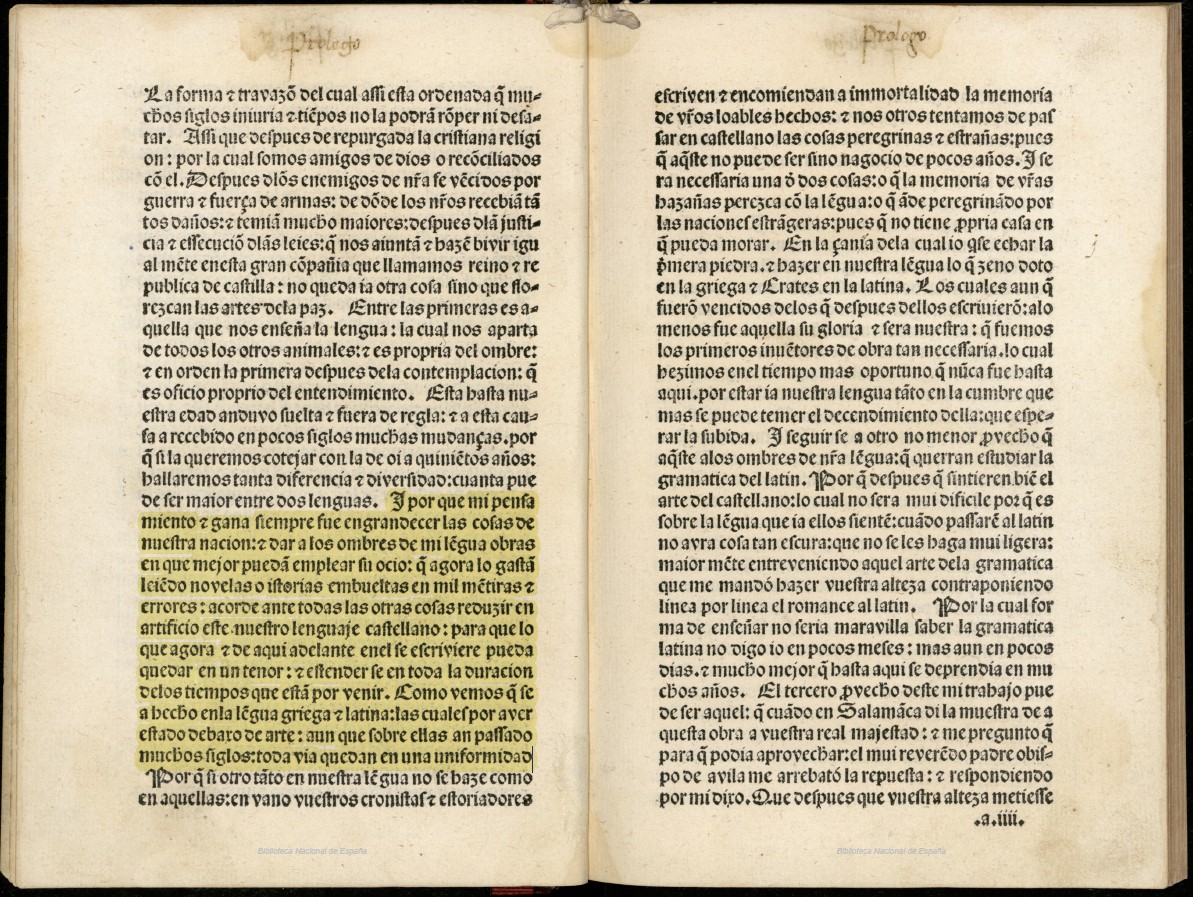 Prologo
La forma ⁊ travazõ del cual assi esta ordenada q̃ mu⸗
chos siglos iniuria ⁊ tiẽpos no la podrã rõper ni desa⸗
tar. Assi que despues de repurgada la cristiana religi
on : por la cual somos amigos de dios o recõciliados
cõ el. Despues dlõs enemigos de nr̃a fe vẽcidos por
guerra ⁊ fuerça de armas: de dõde los nr̃os recebiã tã
tos daños: ⁊ temiã mucho maiores: despues dlã justi⸗
cia ⁊ essecuciõ dlãs leies: q̃ nos aiuntã ⁊ hazẽ bivir igu
al mẽte enesta gran cõpañia que llamamos reino ⁊ re
publica de castilla : no queda ia otra cosa sino que flo⸗
rezcan las artes dela paz. Entre las primeras es a⸗
quella que nos enseña la lengua : la cual nos aparta
de todos los otros animales: ⁊ es propria del ombre:
⁊ en orden la primera despues dela contemplacion: q̃
es oficio proprio del entendimiento. Esta hasta nu⸗
estra edad anduvo suelta ⁊ fuera de regla: ⁊ a esta cau⸗
sa a recebido en pocos siglos muchas mudanças. por
q̃ si la queremos cotejar con la de oi a quiniẽtos años:
hallaremos tanta diferencia ⁊ diversidad: cuanta pue
de ser maior entre dos lenguas. I por que mi pensa
miento ⁊ gana siempre fue engrandecer las cosas de
nuestra nacion: ⁊ dar a los ombres de mi lẽgua obras
en que mejor puedã emplear su ocio: q̃ agora lo gastã
leiẽdo novelas o istorias embueltas en mil mẽtiras ⁊
errores : acorde ante todas las otras cosas reduzir en
artificio este nuestro lenguaje castellano : para que lo
que agora ⁊ de aqui adelante enel se escriviere pueda
quedar en un tenor: ⁊ estender se en toda la duracion
delos tiempos que estã por venir. Como vemos q̃ se
a hecho enla lẽgua griega ⁊ latina: las cuales por aver
estado debaxo de arte : aun que sobre ellas an passado
muchos siglos: toda via quedan en una uniformidad
Por q̃ si otro tãto en nuestra lẽgua no se haze como
en aquellas: en vano vuestros cronistas ⁊ estoriadores
Biblioteca Nacional de España
Prologo
escriven ⁊ encomiendan a immortalidad la memoria
de vr̃os loables hechos: ⁊ nos otros tentamos de pas
sar en castellano las cosas peregrinas ⁊ estrañas: pues
q̃ aq̃ste no puede ser sino nagocio de pocos años. I se
ra necessaria una õ dos cosas: o q̃ la memoria de vr̃as
hazañas perezca cõ la lẽgua: o q̃ ãde peregrinãdo por
las naciones estrãgeras: pues q̃ no tiene ꝓpria casa en
q̃ pueda morar. En la çania dela cual io q̃se echar la
p̃mera piedra. ⁊ hazer en nuestra lẽgua lo q̃ zeno doto
en la griega ⁊ Crates en la latina. Los cuales aun q̃
fuerõ vencidos delos q̃ despues dellos escrivierõ: alo
menos fue aquella su gloria ⁊ sera nuestra : q̃ fuemos
los primeros inuẽtores de obra tan necessaria. lo cual
hezimos enel tiempo mas oportuno q̃ nũca fue hasta
aqui. por estar ia nuestra lengua tãto en la cumbre que
mas se puede temer el decendimiento della: que espe⸗
rar la subida. I seguir se a otro no menor ꝓvecho q̃
aq̃ste alos ombres de nr̃a lẽgua: q̃ querran estudiar la
gramatica del latin. Por q̃ despues q̃ sintieren biẽ el
arte del castellano: lo cual no sera mui dificile por q̃ es
sobre la lẽgua que ia ellos sientẽ: cuãdo passarẽ al latin
no avra cosa tan escura: que no se les haga mui ligera:
maior mẽte entreveniendo aquel arte dela gramatica
que me mandó hazer vuestra alteza contraponiendo
linea por linea el romance al latin. Por la cual for
ma de enseñar no seria maravilla saber la gramatica
latina no digo io en pocos meses : mas aun en pocos
dias. ⁊ mucho mejor q̃ hasta aqui se deprendia en mu
chos años. El tercero ꝓvecho deste mi trabajo pue
de ser aquel: q̃ cuãdo en Salamãca di la muestra de a
questa obra a vuestra real majestad : ⁊ me pregunto q̃
para q̃ podia aprovechar: el mui reverẽdo padre obis⸗
po de avila me arrebató la repuesta : ⁊ respondiendo
por mi dixo. Que despues que vuestra alteza metiesse
.a.iiii.
Biblioteca Nacional de España